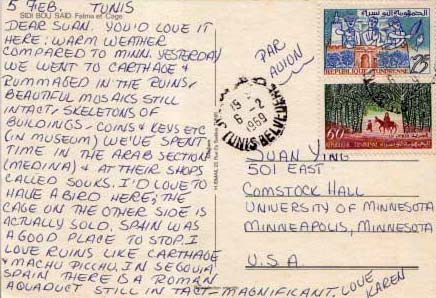 5 FEB. TUNIS
SIDI BOU SAID. Falma et Cage
DEAR SUAN. YOU'D LOVE IT
HERE: WARM WEATHER
COMPARED TO MINN. YESTERDAY
WE WENT TO CARTHAGE &
RUMMAGED IN THE RUINS,
BEAUTIFUL MOSAICS STILL
INTACT, SKELETONS OF
BUILDINGS, COINS & KEYS ETC
(IN MUSEUM) WE'VE SPENT
TIME IN THE ARAB SECTION
(MEDINA) & AT THEIR SHOPS
CALLED SOUKS. I'D LOVE TO
HAVE A BIRD HERE; THE
CAGE ON THE OTHER SIDE IS
ACTUALLY SOLD. SPAIN WAS
A GOOD PLACE TO STOP. I
LOVE RUINS LIKE CARTHAGE
& MACHU PICCHU. IN SEGOVIA
SPAIN THERE IS A ROMAN
AQUADUCT STILL IN TACT - MAGNIFICANT.
LOVE
KAREN
PAR
AVION
6-2
1969
TUNIS BELVEDERE
الجمهورية التونسية
25
REPUBLIQUE TUNISIENNE
60
REPUBLIQUE TUNISIENNE
SUAN YING
501 EAST
COMSTOCK HALL
UNIVERSITY OF MINNESOTA
MINNEAPOLIS, MINNESOTA
U.S.A